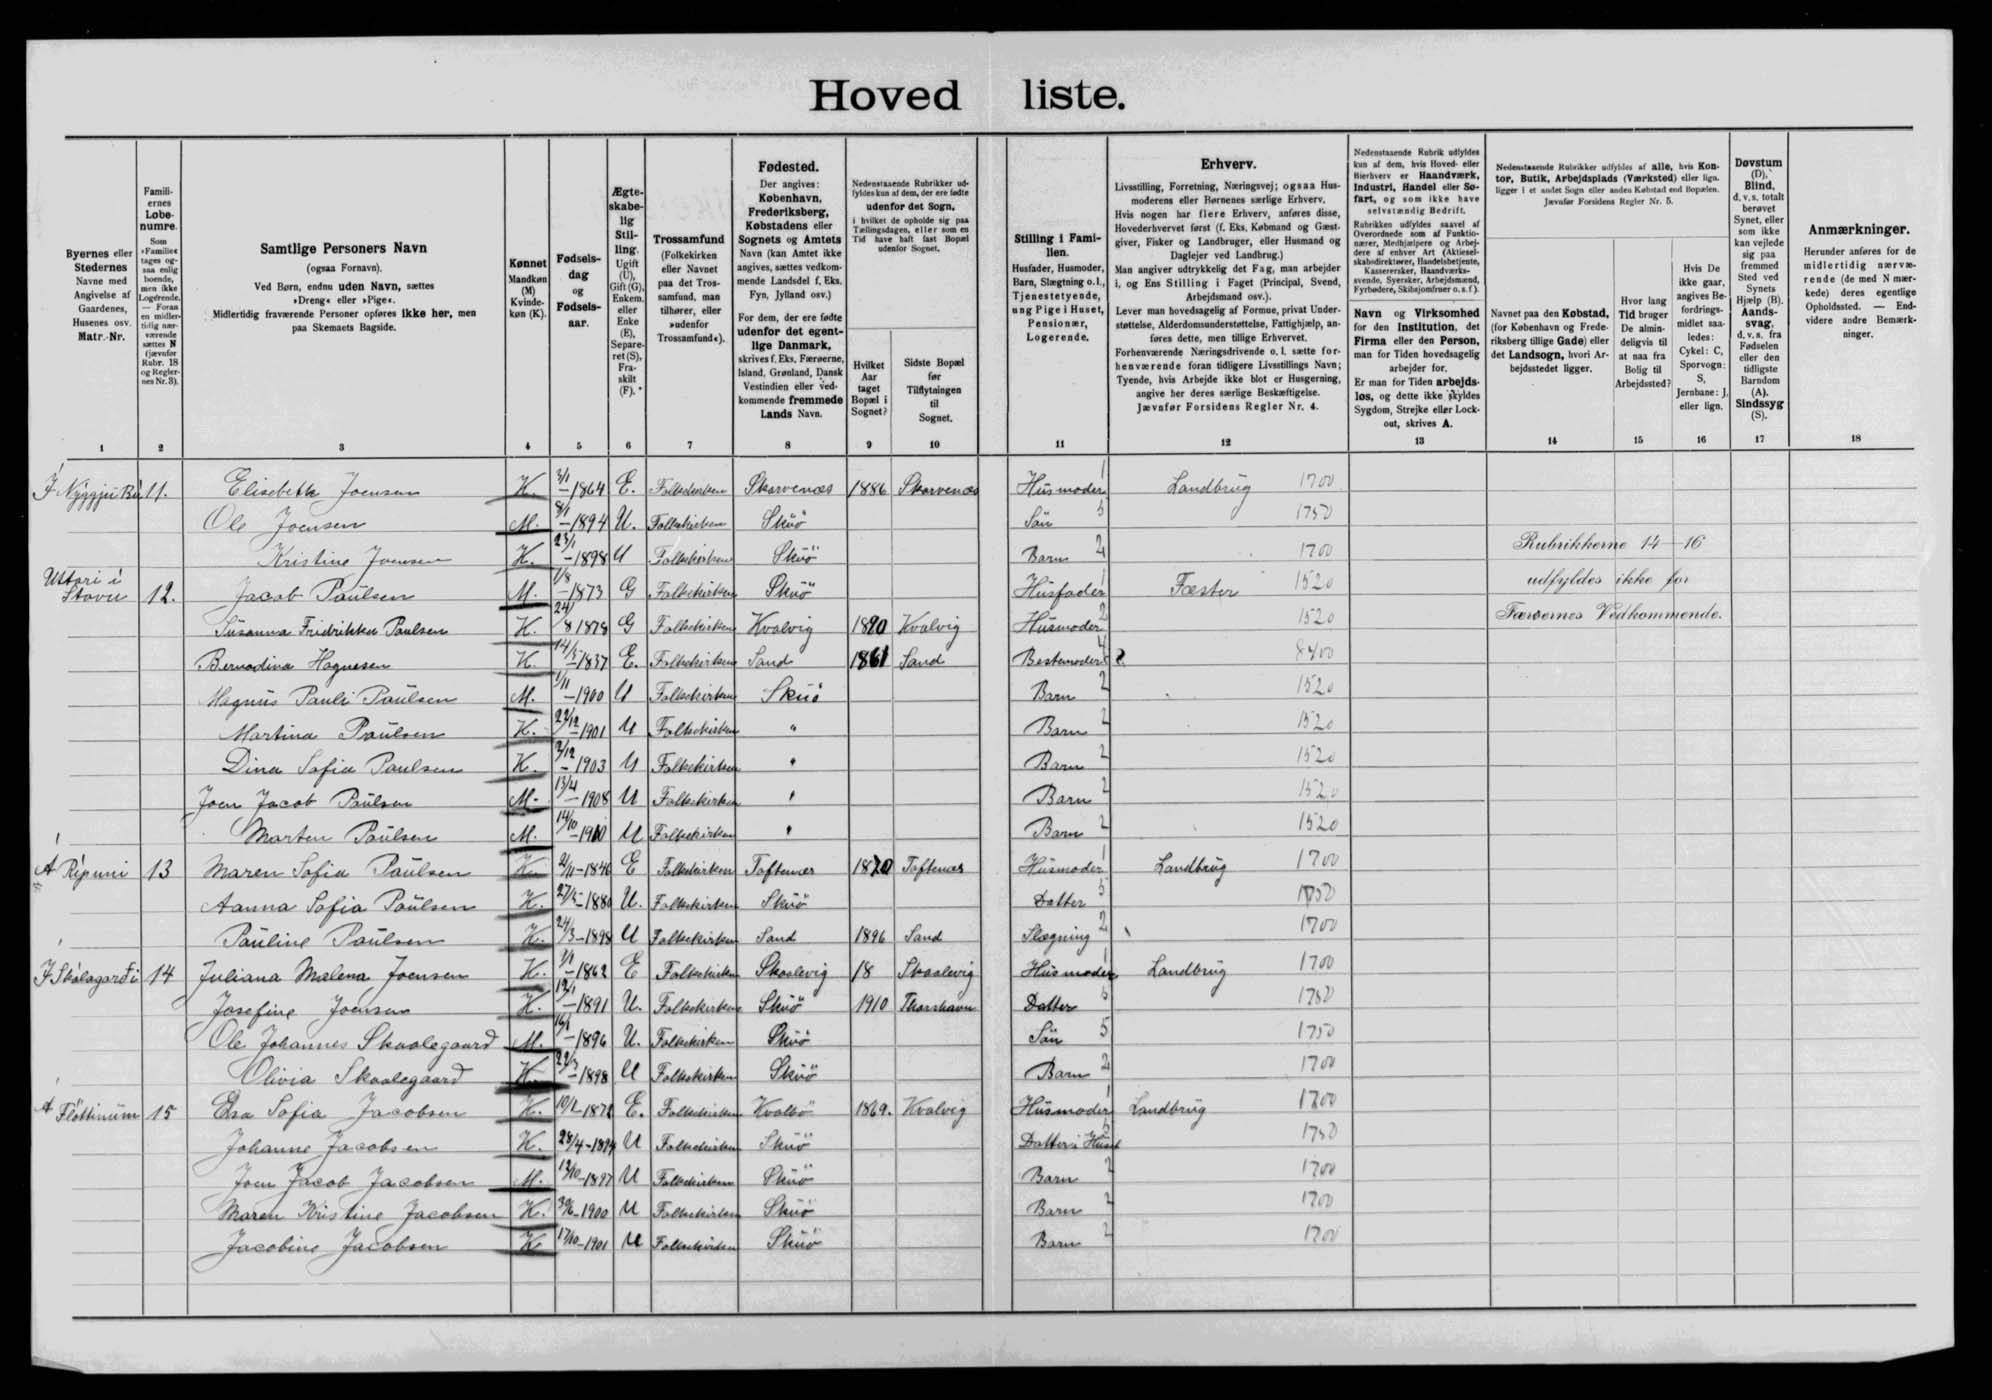 Hovedliste.
Byernes eller Stedernes Navne med Angivelse af Gaardenes, Husenes osv. Matr.-Nr.
Familiernes Løbenumre. Som »Familie« tages ogsaa enlig boende, men ikke Logérende. — Foran en midlertidig nærværende sættes N (jævnfør Rubr. 18 og Regler- nes Nr. 3).
Samtlige Personers Navn (ogsaa Fornavn). Ved Børn, endnu uden Navn, sættes »Dreng« eller »Pige«. Midlertidig fraværende Personer opføres ikke her, men paa Skemaets Bagside.
Kønnet Mandkøn (M) Kvindekøn (K).
Fødselsdag og Fødselsaar.
Ægteskabelig Stilling. Ugift (U), Gift (G), Enkem. eller Enke (E), Separeret (S), Fraskilt (F).
Trossamfund (Folkekirken eller Navnet paa det Trossamfund, man tilhører, eller »udenfor Trossamfund«).
Fødested. Der angives: København, Frederiksberg, Købstadens eller Sognets og Amtets Navn (kan Amtet ikke angives, sættes vedkommende Landsdel f. Eks. Fyn, Jylland osv.) For dem, der ere fødte udenfor det egentlige Danmark, skrives f. Eks. Færøerne, Island, Grønland, Dansk Vestindien eller vedkommende fremmede Lands Navn.
Nedenstaaende Rubrikker udfyldes kun af dem, der ere fødte udenfor det Sogn, i hvilket de opholde sig paa Tællingsdagen, eller som en Tid have haft fast Bopæl udenfor Sognet.
Hvilket Aar taget Bopæl i Sognet?
Sidste Bopæl før Tilflytningen til Sognet.
Stilling i Familien. Husfader, Husmoder, Barn, Slægtning o. l., Tjenestetyende, ung Pige i Huset, Pensionær, Logerende.
Erhverv.
Livsstilling, Forretning, Næringsvej; ogsaa Husmoderens eller Børnenes særlige Erhverv.
Hvis nogen har flere Erhverv, anføres disse, Hovederhvervet først (f. Eks. Købmand og Gæstgiver, Fisker og Landbruger, eller Husmand og Daglejer ved Landbrug.)
Man angiver udtrykkelig det Fag, man arbejder i, og Ens Stilling i Faget (Principal, Svend, Arbejdsmand osv.).
Lever man hovedsagelig af Formue, privat Understøttelse, Alderdomsunderstøttelse, Fattighjælp, anføres dette, men tillige Erhvervet.
Forhenværende Næringsdrivende o. l. sætte forhenværende foran tidligere Livsstillings Navn; Tyende, hvis Arbejde ikke blot er Husgerning, angive her deres særlige Beskæftigelse.
Jævnfør Forsidens Regler Nr. 4.
Nedenstaaende Rubrik udfyldes kun af dem, hvis Hoved- eller Bierhverv er Haandværk, Industri, Handel eller Søfart, og som ikke have selvstændig Bedrift.
Rubrikken udfyldes saavel af Overordnede som af Funktionærer, Medhjælpere og Arbejdere af enhver Art (Aktieselskabsdirektører, Handelsbetjente, Kasserersker, Haandværkssvende, Syersker, Arbejdsmænd, Fyrbødere, Skibsjomfruer o. s. f.).
Navn og Virksomhed for den Institution, det Firma eller den Person, man for Tiden hovedsagelig arbejder for.
Er man for Tiden arbejdsløs, og dette ikke skyldes Sygdom, Strejke eller Lockout, skrives A.
Nedenstaaende Rubrikker udfyldes af alle, hvis Kontor, Butik, Arbejdsplads (Værksted) eller lign. ligger i et andet Sogn eller anden Købstad end Bopælen. Jævnfør Forsidens Regler Nr. 5.
Navnet paa den Købstad, (for København og Frederiksberg tillige Gade) eller det Landsogn, hvori Arbejdsstedet ligger.
Hvor lang Tid bruger De almindeligvis til at naa fra Bolig til Arbejdssted?
Hvis De ikke gaar, angives Befordringsmidlet saaledes: Cykel: C, Sporvogn: S, Jernbane: J, eller lign.
Døvstum (D), Blind, d. v. s. totalt berøvet Synet, eller som ikke kan vejlede sig paa fremmed Sted ved Synets Hjælp (B). Aandssvag, d. v. s. fra Fødselen eller den tidligste Barndom (A). Sindssyg (S).
Anmærkninger. Herunder anføres for de midlertidig nærværende (de med N mærkede) deres egentlige Opholdssted. — Endvidere andre Bemærkninger.
1 2 3 4 5 6 7 8 9 10 11 12 13 14 15 16 17 18
Í Nýggju Bú 11. Elisebeth Joensen K. 3/1 1864 E. Folkekirken Skarvenæs 1886 Skarvenæs Husmoder 1 Landbrug 1700
Ole Joensen M. 8/1 1894 U. Folkekirken Skuö Sön 5 1750
Kristine Joensen K. 23/1 1898 U Folkekirken Skuö Barn 2 1700 Rubrikkerne 14–16
Uttari í Stovu 12. Jacob Paulsen M. 1/8 1873 G Folkekirken Skuö Husfader 1 Fæster 1520 udfyldes ikke for
Susanna Fridrikka Paulsen K. 24/8 1878 G Folkekirken Kvalvig 1890 Kvalvig Husmoder 2 1520 Færøernes Vedkommende.
Bernadina Hagnesen K. 14/5 1837 E. Folkekirken Sand 1861 Sand Bestemoder 4 ? 8400
Magnus Pauli Paulsen M. 1/11 1900 U Folkekirken Skuö Barn 2 1520
Martina Paulsen K. 29/12 1901 U Folkekirken " Barn 2 1520
Dina Sofia Paulsen K. 2/12 1903 U Folkekirken " Barn 2 1520
Joen Jacob Paulsen M. 13/4 1908 U Folkekirken " Barn 2 1520
Morten Paulsen M. 14/10 1910 U Folkekirken " Barn 2 1520
Á Rípuni 13 Maren Sofia Paulsen K 2/11 1846 E Folkekirken Toftenæs 1870 Toftenæs Husmoder 1 Landbrug 1700
Aanna Sofia Paulsen K. 27/5 1880 U. Folkekirken Skuö Datter 5 1750
Pauline Paulsen K. 24/3 1898 U Folkekirken Sand 1896 Sand Slægning 2 1700
Í Skálagarði 14 Juliana Malena Joensen K. 1/1 1862 E Folkekirken Skaalevig 18 Skaalevig Husmoder 1 Landbrug 1700
Josefine Joensen K. 12/1 1891 U. Folkekirken Skuö 1910 Thorshavn Datter 5 1750
Ole Johannes Skaalegaard M. 1896 U. Folkekirken Skuö Sön 5 1750
Olivia Skaalegaard K. 22/3 1898 U Folkekirken Skuö Barn 2 1700
Á Fløttinum 15 Elsa Sofia Jacobsen K. 1872 E. Folkekirken Kvalbö 1869. Kvalvig Husmoder 1 Landbrug 1700
Johanne Jacobsen K. 28/4-1894 U Folkekirken Skuö Datter i Huset 5 1750
Joen Jacob Jacobsen M. 12/10-1897 U Folkekirken Skuö Barn 2 1700
Maren Kristine Jacobsen K. 30/6-1900 U Folkekirken Skuö Barn 2 1700
Jacobine Jacobsen K 17/10-1901 U Folkekirken Skuö Barn 2 1700